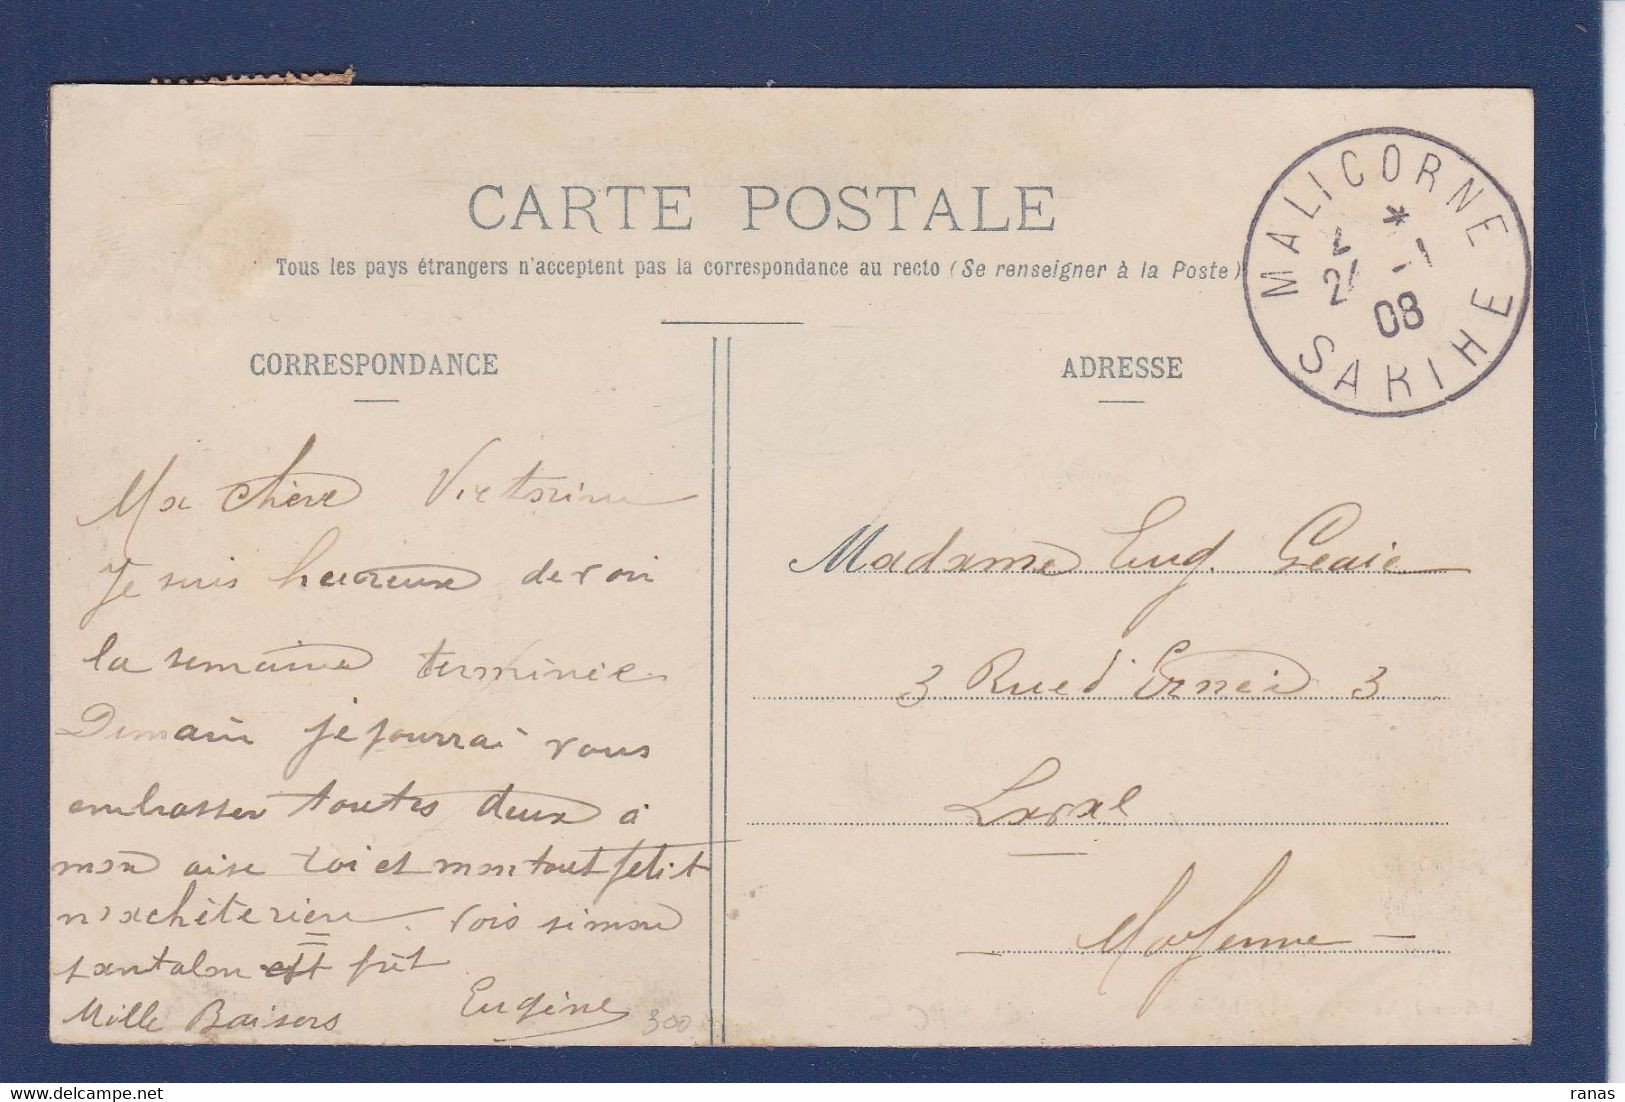 CARTE POSTALE
Tous les pays étrangers n'acceptent pas la correspondance au recto (Se renseigner à la Poste)
MALICORNE
*
21 -1
08
SARTHE
CORRESPONDANCE
Ma chère Victorine
Je suis heureux de voir
la semaine terminée
Demain je pourrai vous
embrasser toutes deux à
mon aise toi et mon tout petit
n'achète rien. vois si mon
pantalon est prêt
Mille Baisers Eugène
300
ADRESSE
Madame Eug. Geaie
3 Rue d'Ernée 3
Laval
Mayenne
ranas